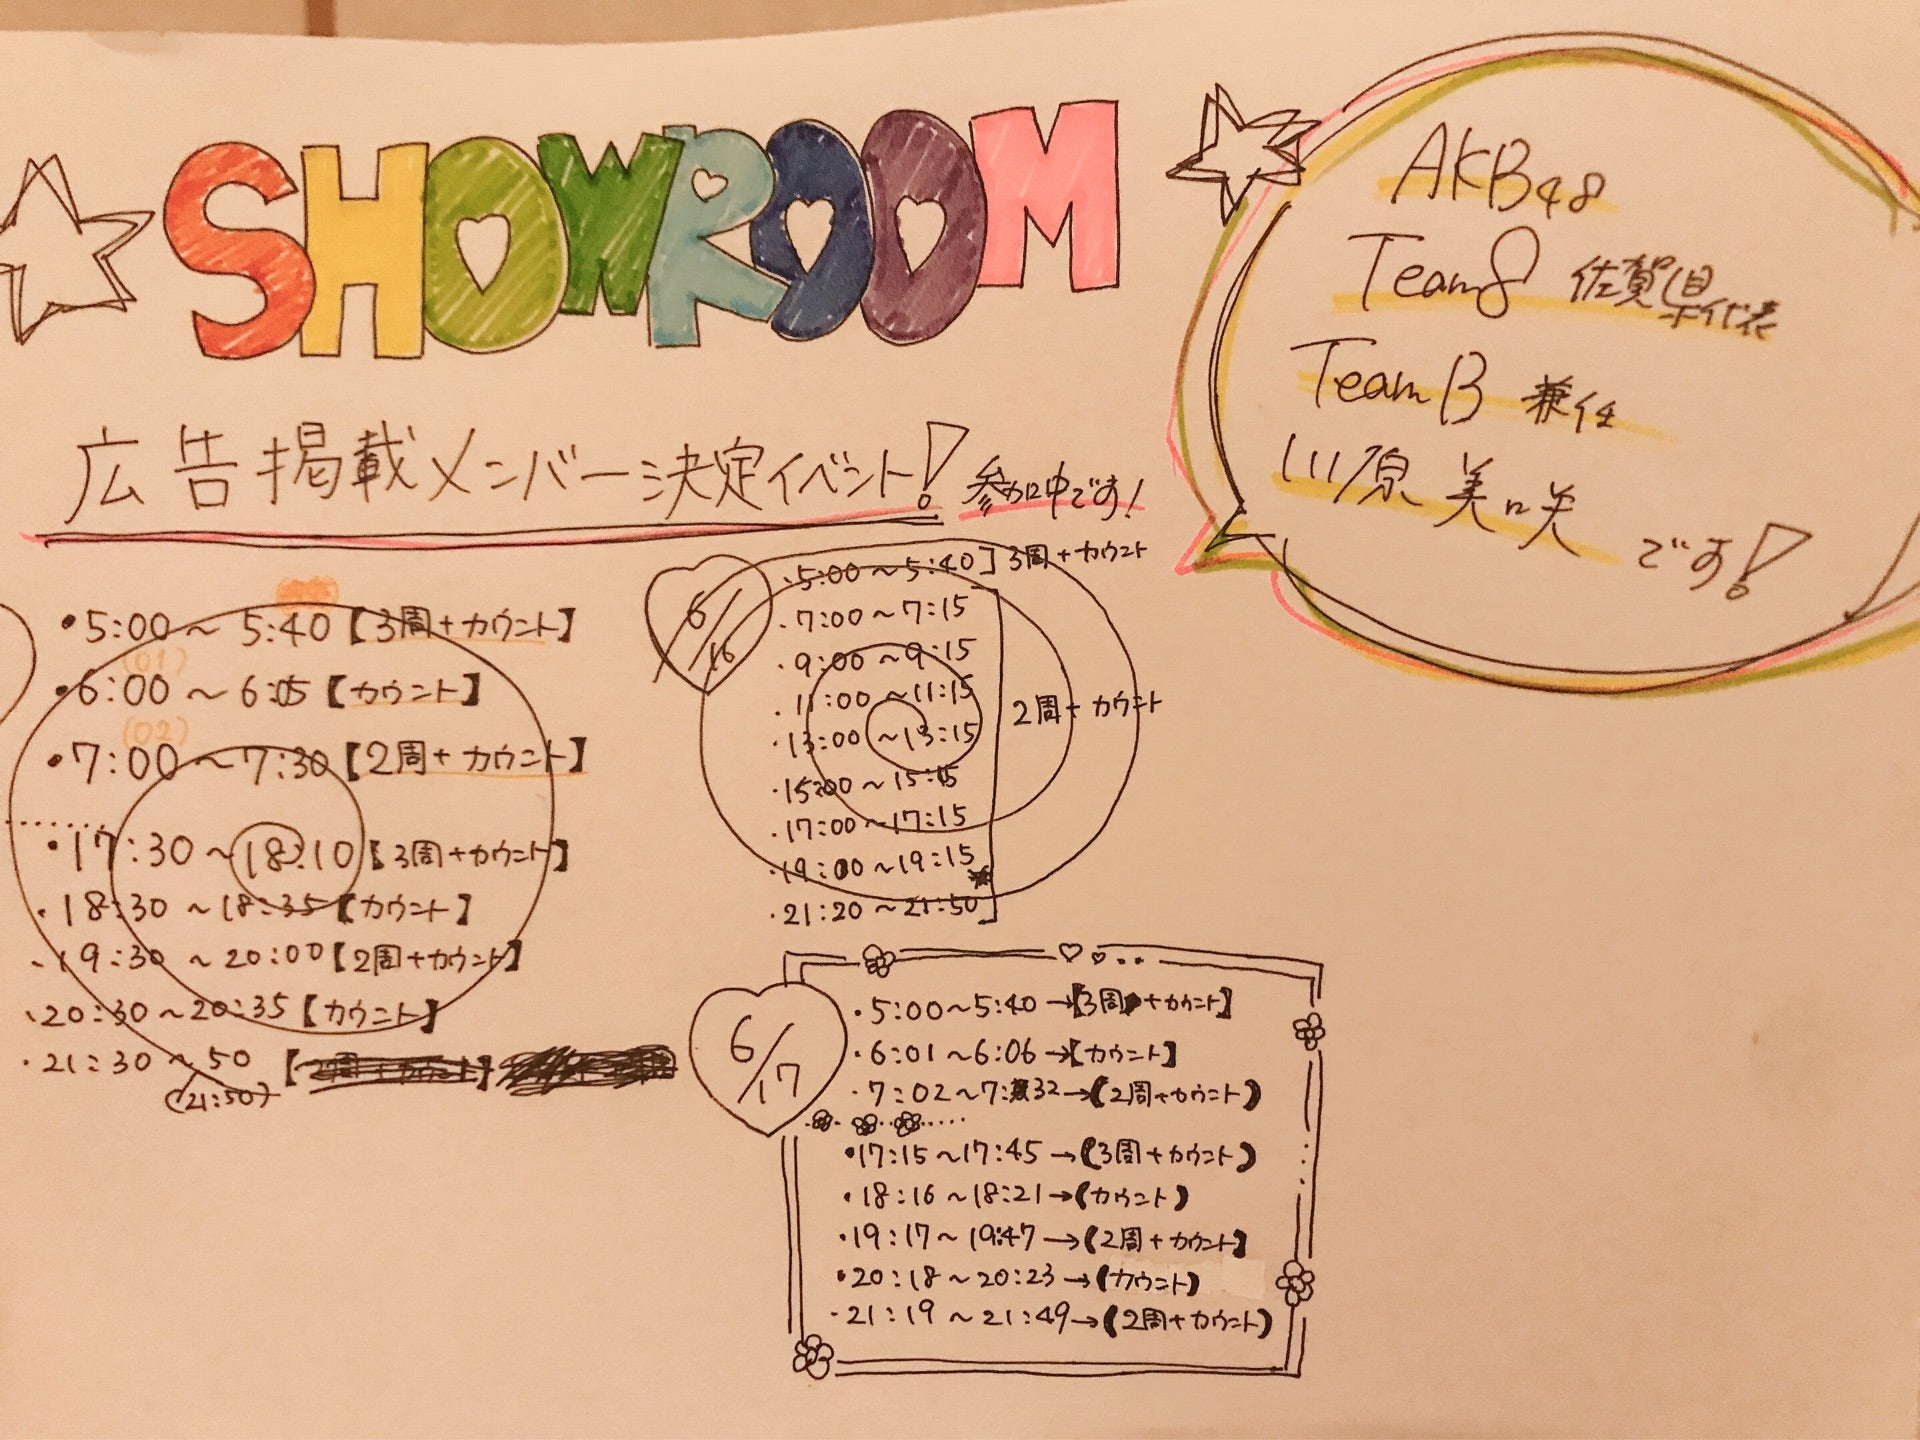 SHOWROOM
広告掲載メンバー決定イベント! 参加中です!
AKB48
Team8 佐賀県代表
TeamB 兼任
川原美咲 です!
・5:00〜5:40【3周+カウント】
(01)
・6:00〜6:05【カウント】
(02)
・7:00〜7:30【2周+カウント】
・17:30〜18:10【3周+カウント】
・18:30〜18:35【カウント】
・19:30〜20:00【2周+カウント】
・20:30〜20:35【カウント】
・21:30〜50
(21:50)
6/16
・5:00〜5:40]3周+カウント
・7:00〜7:15
・9:00〜9:15
・11:00〜11:15
2周+カウント
・13:00〜13:15
・15:00〜15:15
・17:00〜17:15
・19:00〜19:15
・21:20〜21:50
6/17
・5:00〜5:40→【3周+カウント】
・6:01〜6:06→【カウント】
・7:02〜7:32→(2周+カウント)
・17:15〜17:45→(3周+カウント)
・18:16〜18:21→(カウント)
・19:17〜19:47→(2周+カウント】
・20:18〜20:23→(カウント)
・21:19〜21:49→(2周+カウント)